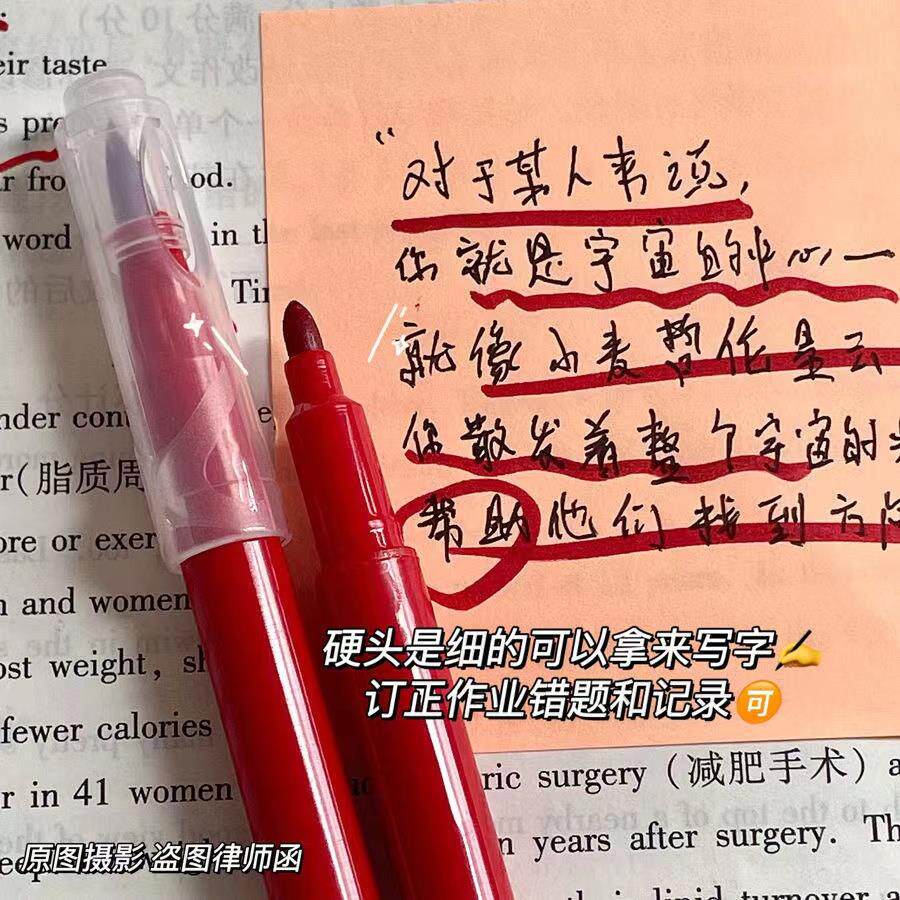 eir taste
s pre
r fro od.
word in th
Tim
nder cont e
r(脂质周
ore or exer
n and women
ost weight, sh
fewer calories
r in 41 women
ric surgery (减肥手术) a
n years after surgery. Th
lipid turnover a
“对于某人来说,
你就是宇宙的中心一
就像小麦哲伦星云
你散发着整个宇宙的光
帮助他们找到方向
硬头是细的可以拿来写字✍
订正作业错题和记录🉑
原图摄影 盗图律师函